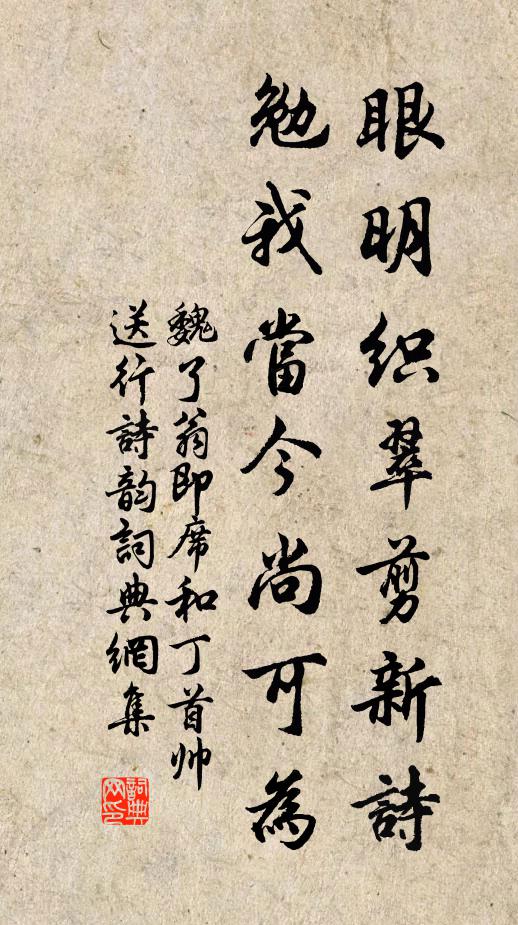 眼明织翠剪新詩
勉我當今尚可為
魏了翁即席和丁首帅
送行詩韵詞典網集
詞典
网印